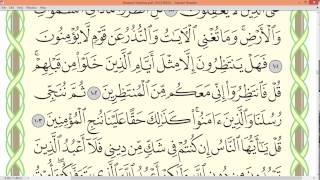 وَٱلْأَرْضِ وَمَا تُغْنِى ٱلْأَيَٰتُ وَٱلنُّذُرُ عَن قَوْمٍ لَّا يُؤْمِنُونَ
١٠١ فَهَلْ يَنتَظِرُونَ إِلَّا مِثْلَ أَيَّامِ ٱلَّذِينَ خَلَوْا۟ مِن قَبْلِهِمْ
قُلْ فَٱنتَظِرُوٓا۟ إِنِّى مَعَكُم مِّنَ ٱلْمُنتَظِرِينَ ١٠٢ ثُمَّ نُنَجِّى
رُسُلَنَا وَٱلَّذِينَ ءَامَنُوا۟ كَذَٰلِكَ حَقًّا عَلَيْنَا نُنجِ ٱلْمُؤْمِنِينَ ١٠٣
قُلْ يَٰٓأَيُّهَا ٱلنَّاسُ إِن كُنتُمْ فِى شَكٍّ مِّن دِينِى فَلَآ أَعْبُدُ ٱلَّذِينَ